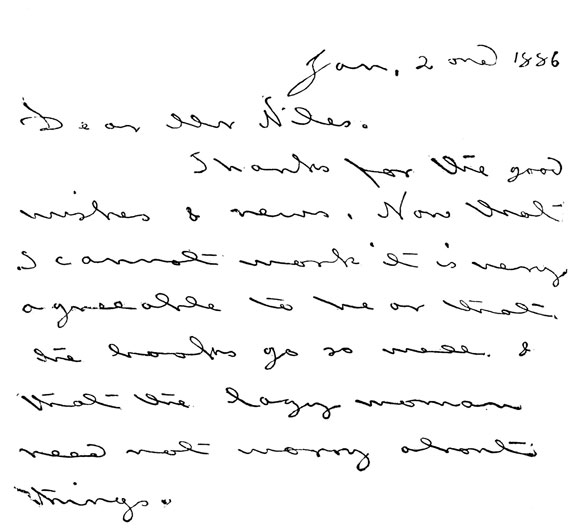 Jan. 2ond 1886
Dear Mr Niles.
Thanks for the good
wishes & news. Now that
I cannot work it is very
agreeable to hear that
the books go so well. &
that the lazy woman
need not worry about
things.